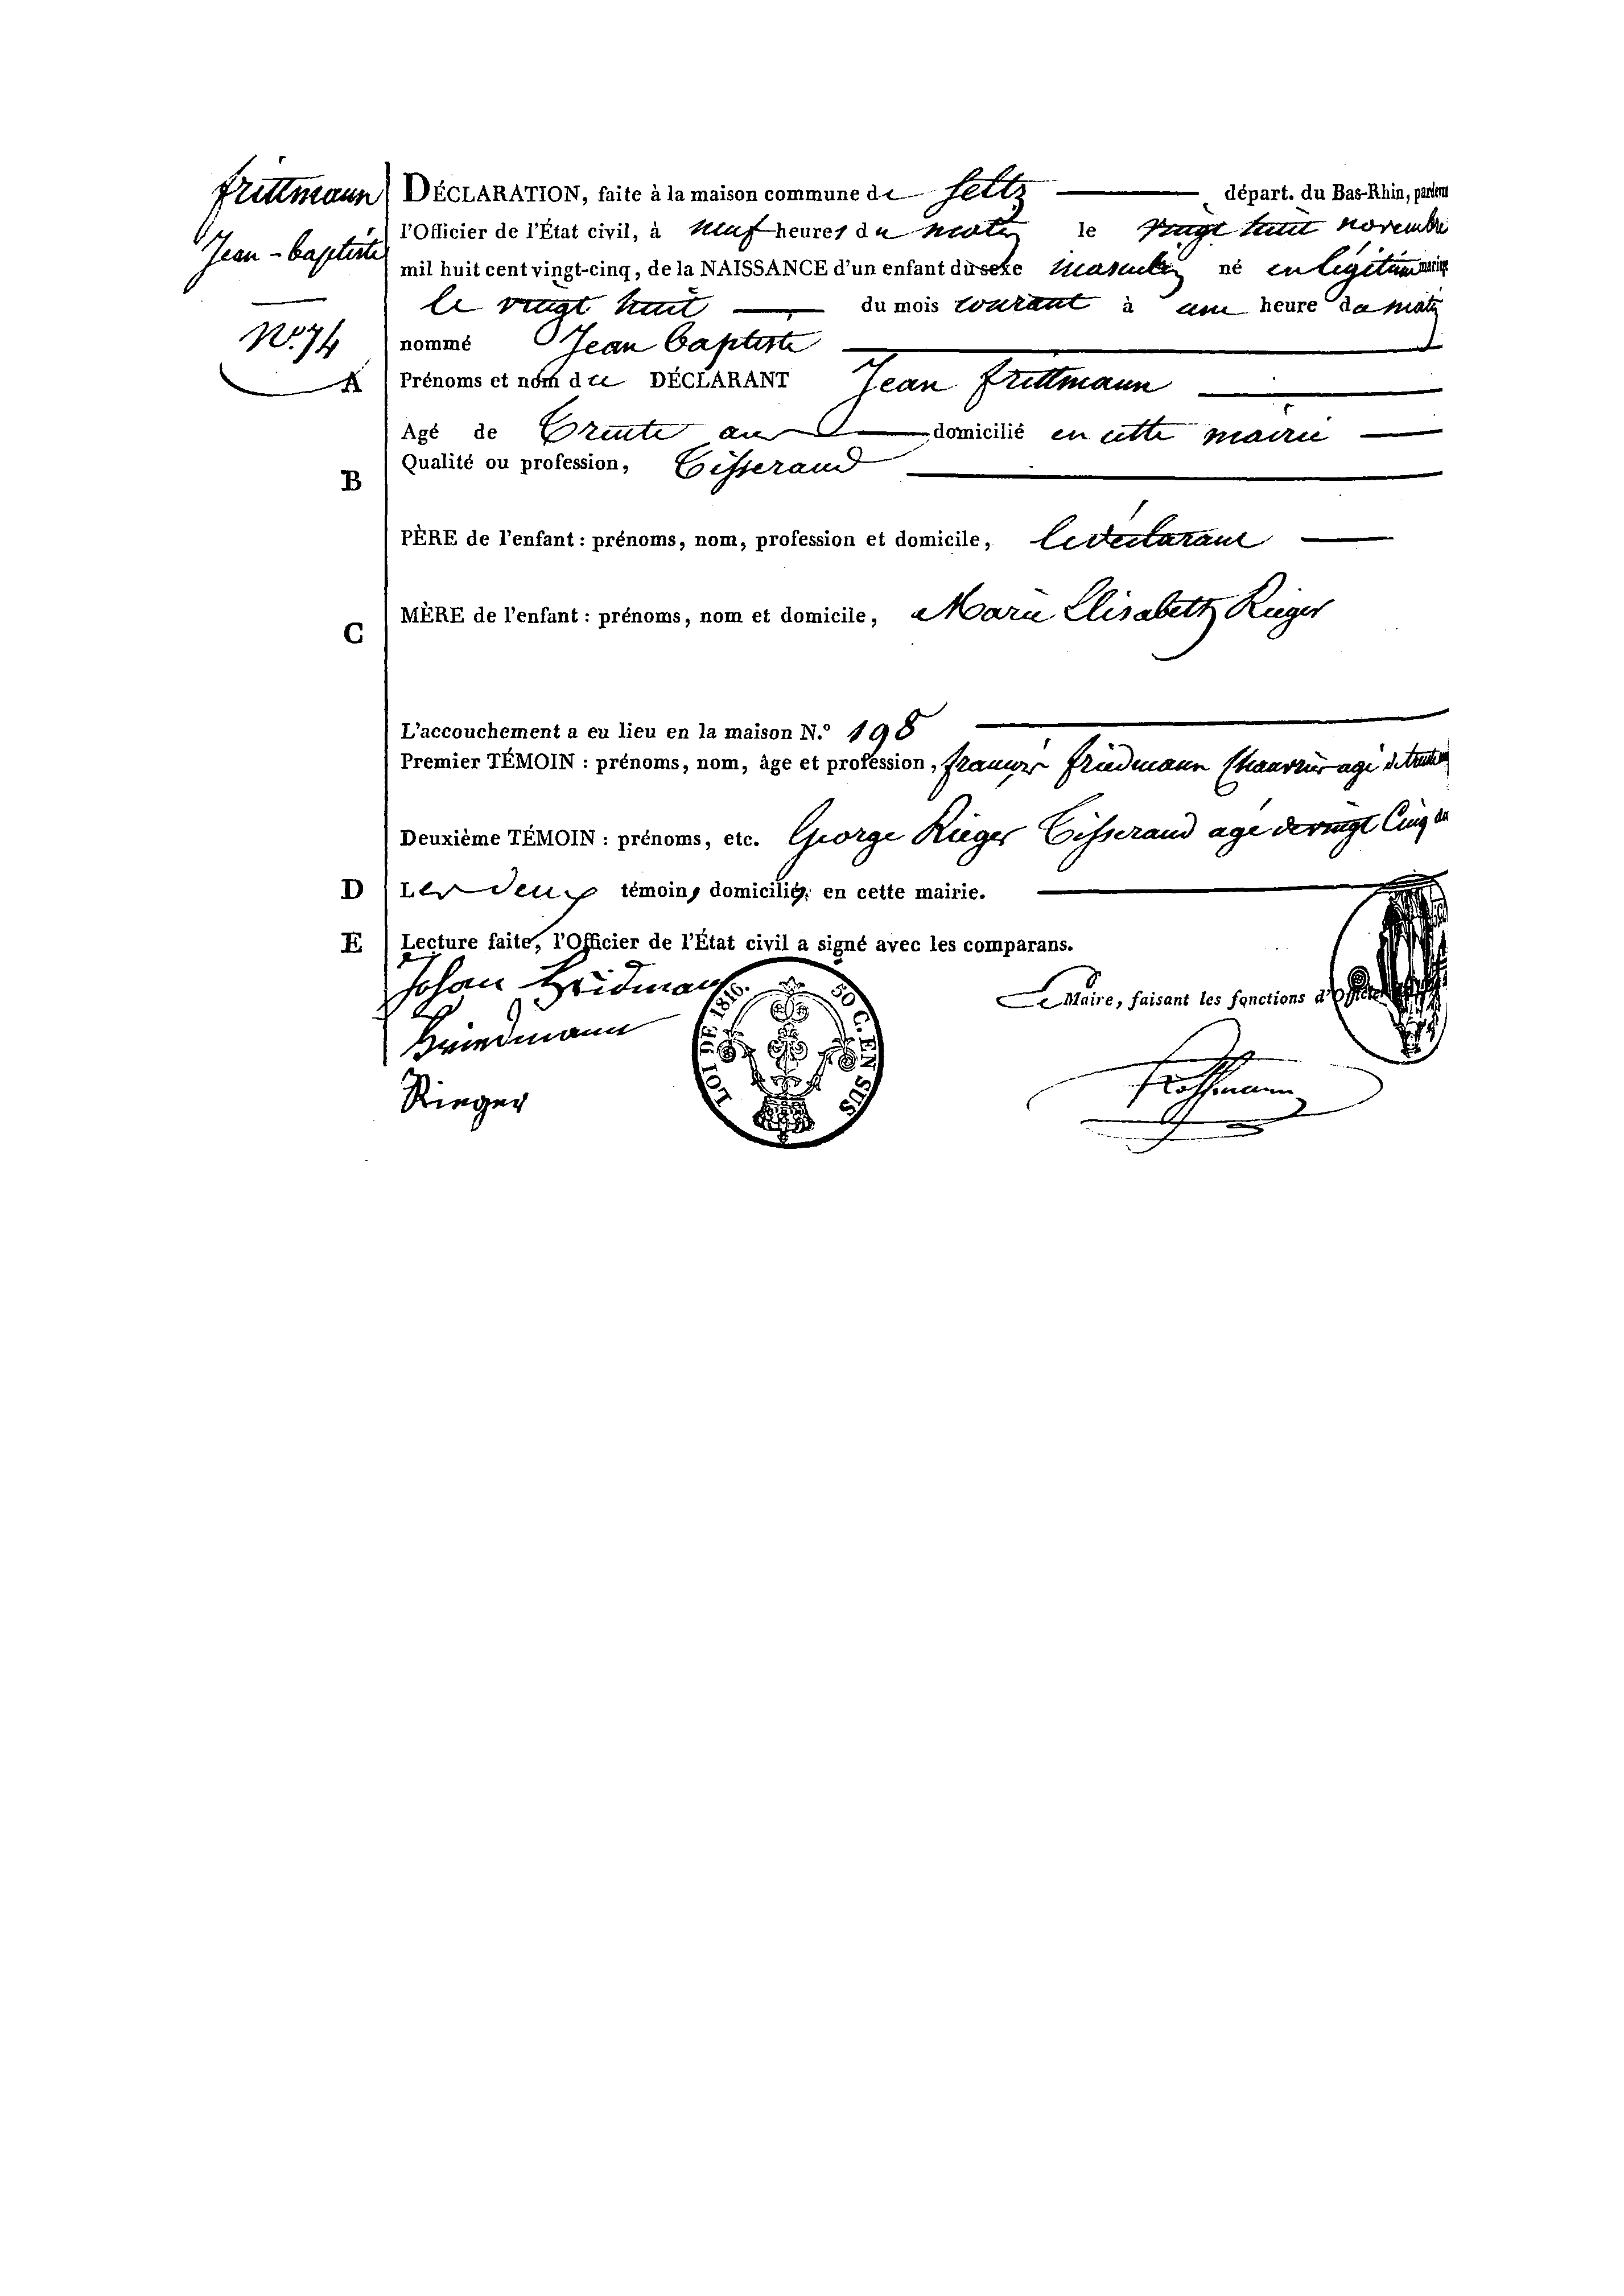 frittmann
Jean-baptiste
No. 74
DÉCLARATION, faite à la maison commune de Seltz départ. du Bas-Rhin, pardevt
l'Officier de l'État civil, à neuf heures du matin le vingt huit novembre
mil huit cent vingt-cinq, de la NAISSANCE d'un enfant du sexe masculin né en légitime mariage
le vingt huit du mois courant à une heure du matin
nommé Jean baptiste
A Prénoms et nom du DÉCLARANT Jean frittmann
Agé de Trente ans domicilié en cette mairie
B Qualité ou profession, Tisserand
PÈRE de l'enfant : prénoms, nom, profession et domicile, le déclarant
C MÈRE de l'enfant : prénoms, nom et domicile, Marie Elisabeth Rieger
L'accouchement a eu lieu en la maison N.º 198
Premier TÉMOIN : prénoms, nom, âge et profession, françois friedmann Chanvrier agé de
Deuxième TÉMOIN : prénoms, etc. George Rieger Tisserand agé de vingt Cinq
D Les deux témoins domiciliés en cette mairie.
E Lecture faite, l'Officier de l'État civil a signé avec les comparans.
Johan Fridman
Le Maire, faisant les fonctions d'Officier
Friedmann
Rieger
LOI DE 1816. 50 C. EN SUS